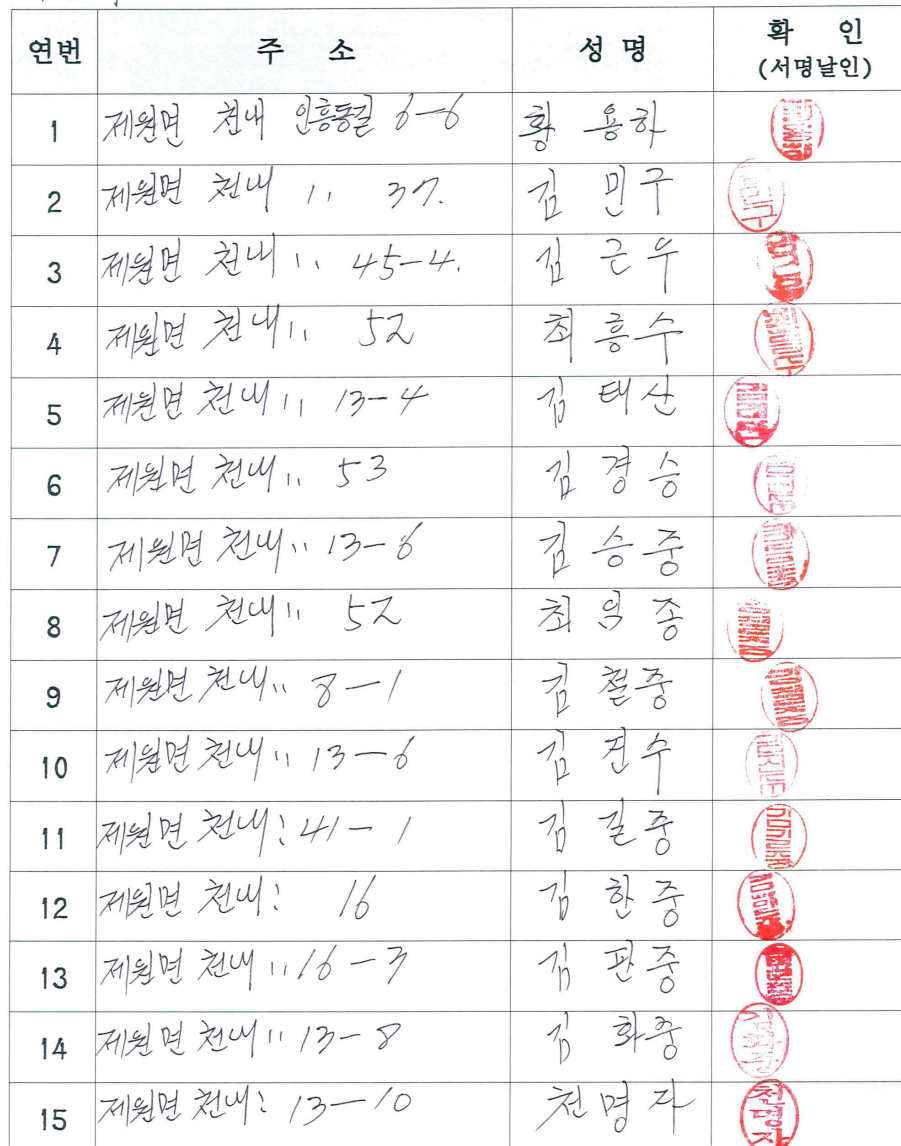 연번 주 소 성 명 확 인
(서명날인)
1 제원면 천내 인흥동길 6-6 황 용하
2 제원면 천내 〃 37. 김 민구
3 제원면 천내 〃 45-4. 김 근우
4 제원면 천내 〃 52 최 흥수
5 제원면 천내 〃 13-4 김 태산
6 제원면 천내 〃 53 김 경승
7 제원면 천내 〃 13-6 김 승중
8 제원면 천내 〃 52 최 종
9 제원면 천내 〃 8-1 김 철중
10 제원면 천내 〃 13-6 김 진수
11 제원면 천내 : 41-1 김 길중
12 제원면 천내 : 16 김 한중
13 제원면 천내 〃 16-3 김 판중
14 제원면 천내 〃 13-8 김 화중
15 제원면 천내 : 13-10 천명자